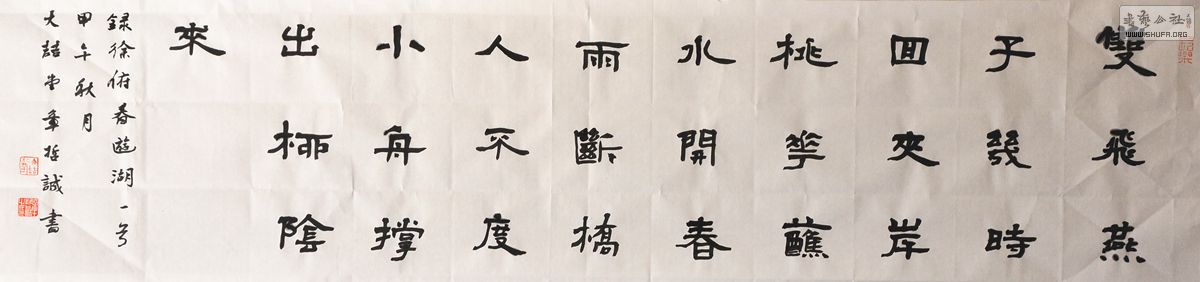 雙飛燕
子幾時
回夾岸
桃花蘸
水開春
雨斷橋
人不度
小舟撐
出柳陰
來
録徐俯春遊湖一首
甲午秋月
大喆堂章哲誠書
書藝公社
WWW.SHUFA.ORG